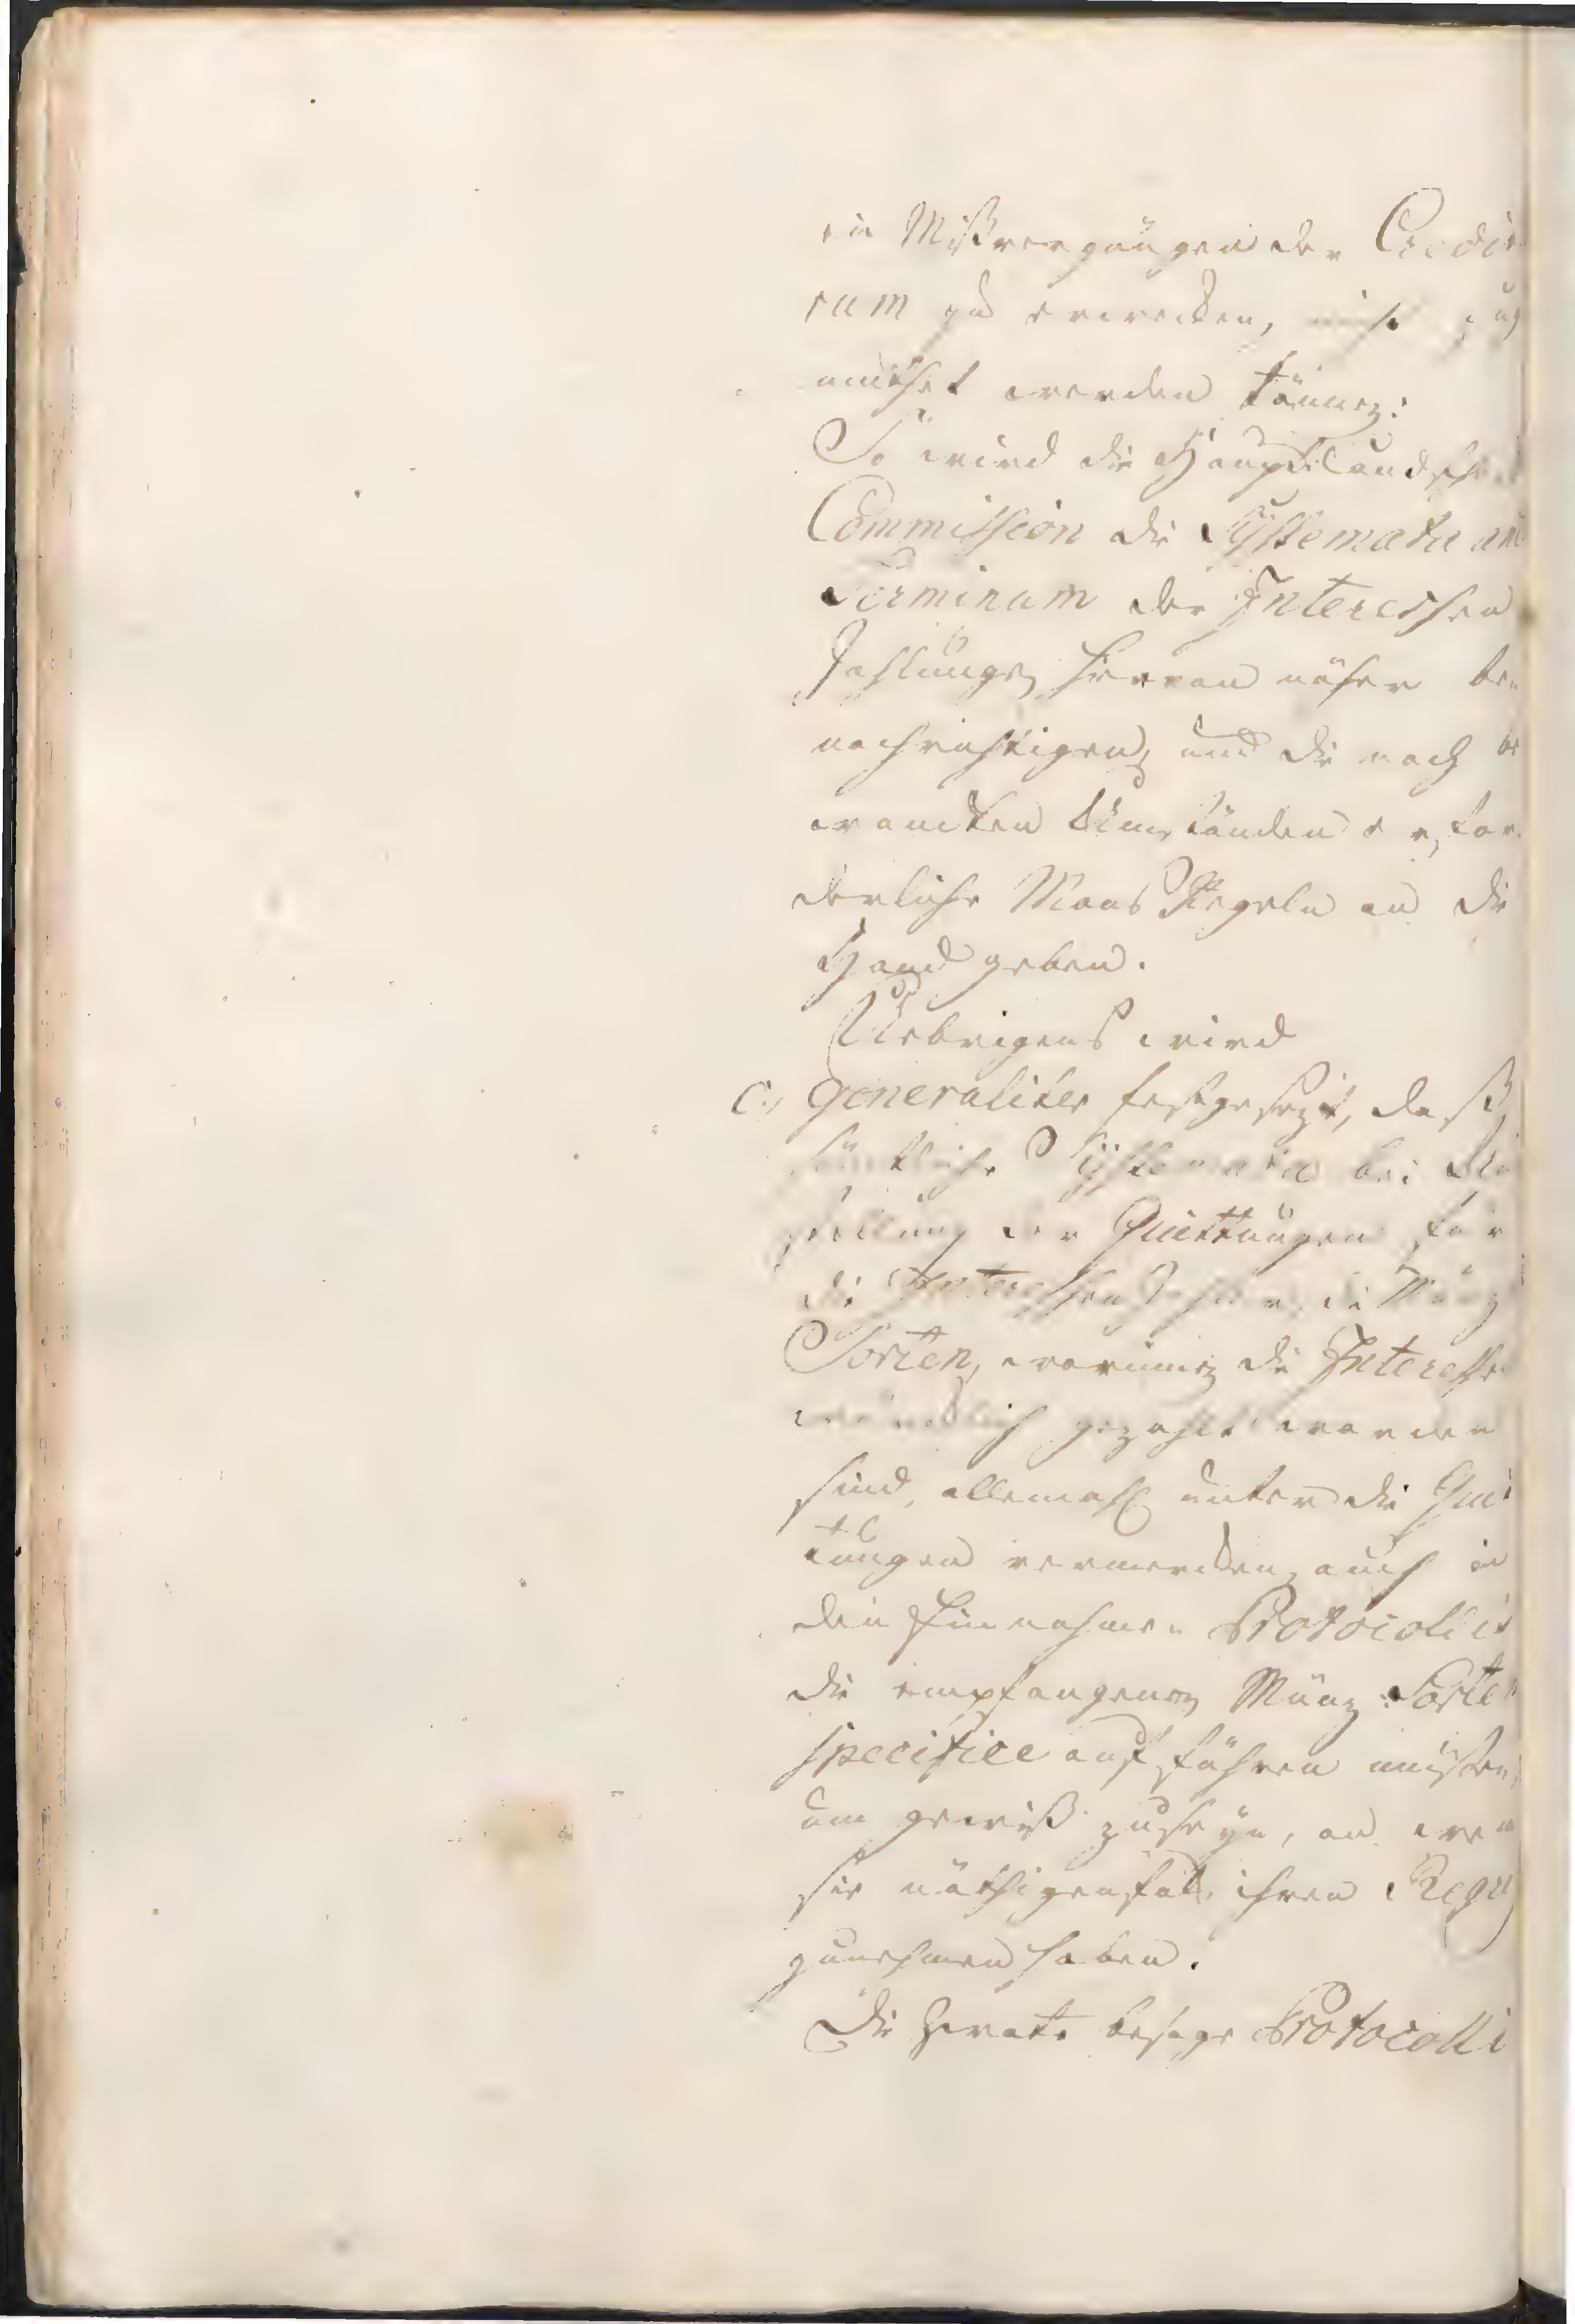 ein Mißvergnügen der Credit
rum zu erwecken, nicht zuge
muthet werden können:
So wird die Hauptlandsch
Commission die Systemata ante
Terminum der Interessen
Zahlungen hiervon näher be
nachrichtigen, und die nach be
wandten Umständen erfor
derliche Maas Regeln an die
Hand geben.
Uebrigens wird
c., generaliter festgesezt, daß
sämtliche Systemata bei
stellung der Quittungen für
die Interessen die Münz
Sorten, worinnen die Interesse
gezahlt worden
sind, allemahl unter die Quit
tungen vermercken, auch in
den Einnahme Protocollis
die empfangenen Münz Sorten
specifice aufführen müssen,
um gewiß zuseyn, an wen
sie nöthigenfals ihren Regreß
zunehmen haben.
Die Herate besage Protocolli